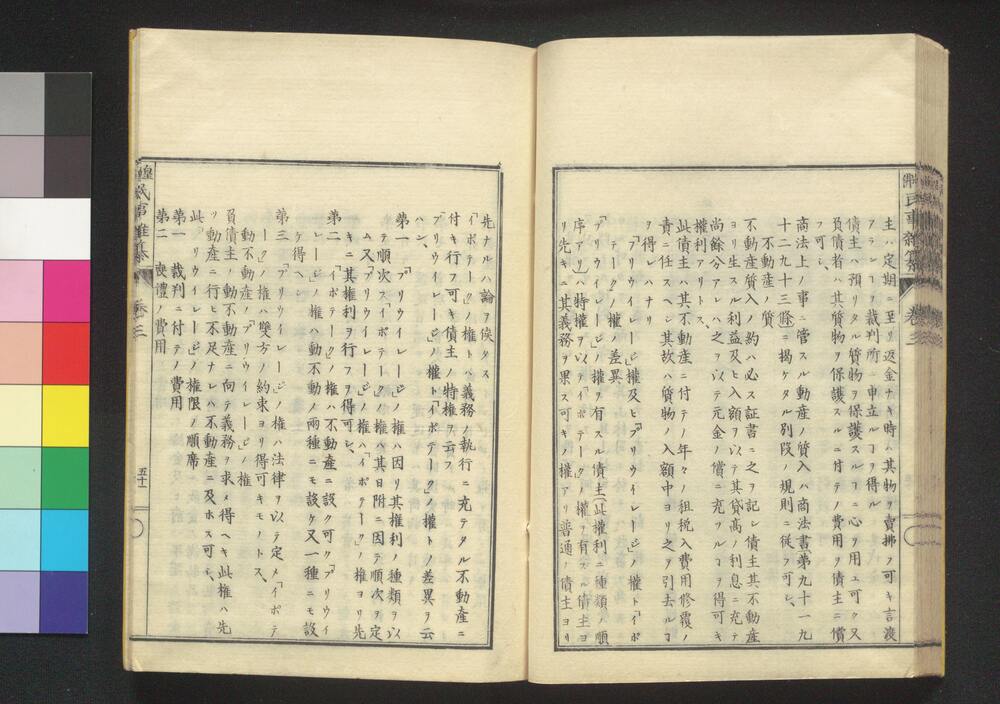 主ハ定期ニ至リ返金ナキ時ハ其物ヲ賣拂フ可キ言渡
ヲランヿヲ裁判所ニ申立ルヿヲ得ル
債主ハ預リタル質物ヲ保護スルヿニ心ヲ用ユ可ク又
負債者ハ其質物ヲ保護スルニ付テノ費用ヲ債主ニ償
フ可シ
商法上ノ事ニ管スル動産ノ質入ハ商法書第九十一九
十二九十三條ニ揭ケタル別段ノ規則ニ従フ可シ
不動産ノ質
不動産質入ノ約ハ必ス証書ニ之ヲ記シ債主其不動産
ヨリ生スル利益及ヒ入額ヲ以テ其貸高ノ利息ニ充テ
尚餘分アレハ之ヲ以テ元金ノ償ニ充ツルヿヲ得可キ
權利アリトス
此債主ハ其不動産ニ付テノ年々ノ租税入費用修覆ノ
責ニ任スヘシ其故ハ質物ノ入額中ヨリ之ヲ引去ルヿ
ヲ得レハナリ
「プリウイレージ」權及ヒ「プリウイレージ」ノ權ト「イポ
テーク」ノ權ノ差異
「プリウイレージ」ノ權ヲ有スル債主(此權利ニ種類ノ順
序アリ)ハ特權ヲ以テ「イポテーク」ノ權ヲ有スル債主ヨ
リ先キニ其義務ヲ果ス可キノ權アリ普通ノ債主ヨリ
先ナルハ論ヲ俟タス
「イポテーク」ノ權トハ義務ノ執行ニ充テタル不動産ニ
付キ行フ可キ債主ノ特權ヲ云フ
「プリウイレージ」ノ權ト「イポテーク」ノ權トノ差異ヲ云
ハン
第一 「プリウイレージ」ノ權ハ因リ其權利ノ種類ヲ以
テ順次ス「イポテーク」ノ權ハ其日附ニ因テ順次ヲ定
ム又「プリウイレージ」ノ權ハ「イポテーク」ノ權ヨリ先
キニ其權利ヲ行フヲ得可シ
第二 「イポテーク」ノ權ハ不動産ニ設ク可ク「プリウイ
レージ」ノ權ハ動不動ノ兩種ニモ設ケ又一種ニモ設
ケ得ヘシ
第三 「プリウイレージ」ノ權ハ法律ヲ以テ定メ「イポテ
ーク」ノ權ハ雙方ノ約束ヨリ得可キモノトス
動不動産ノ「プリウイレージ」ノ權
負債主ノ動不動産ニ向テ義務ヲ求メ得ヘキ此權ハ先
ツ動産ニ行ヒ不足ナレハ不動産ニ及ホス可シ
此「プリウイレージ」ノ權限ノ順席
第一 裁判ニ付テノ費用
第二 喪禮ノ費用
民事雜纂
卷三
五十一